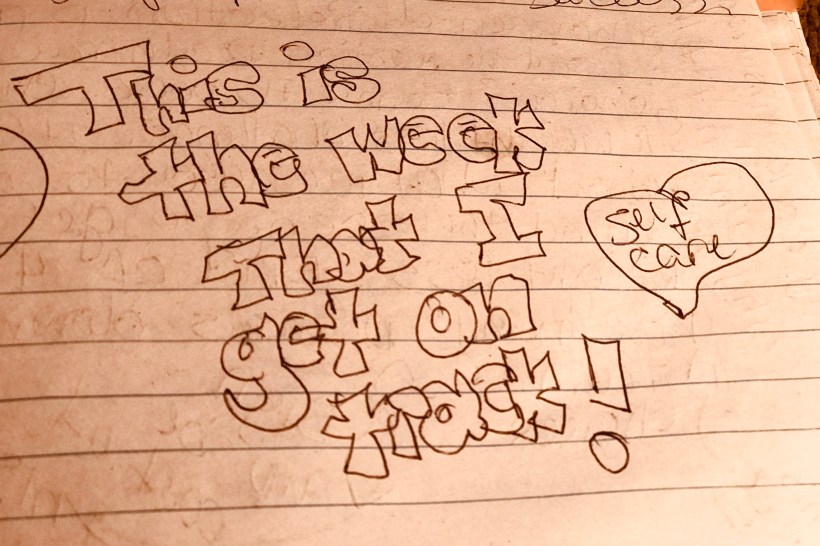 success
This is
the week
That I
get on
track!
self
care